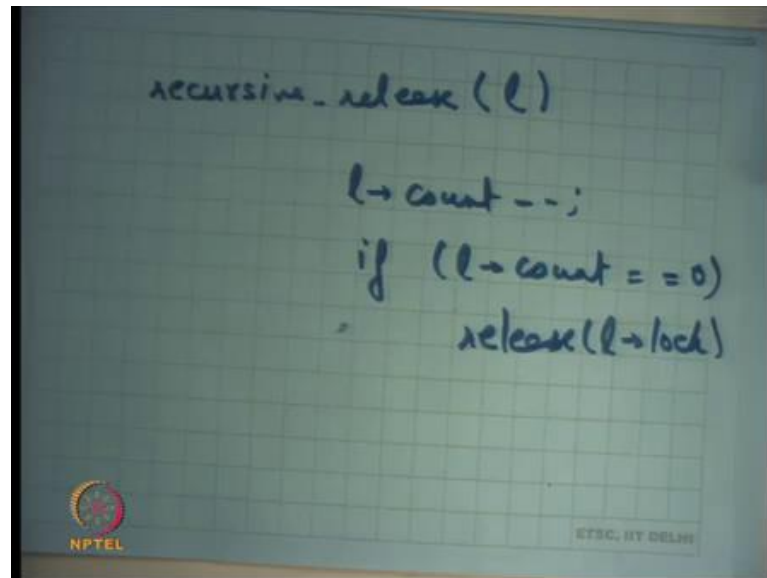 recursive_release (l)
l→ count --;
if (l→ count = = 0)
release(l→lock)
NPTEL
ETSC, IIT DELHI